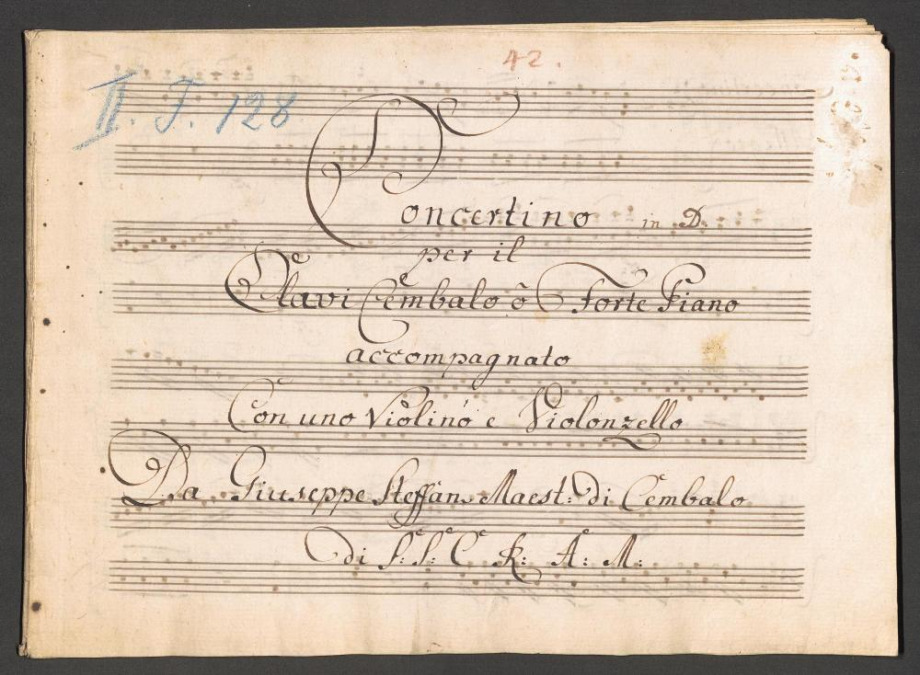 42.
II. J. 128
Concertino in D.
per il
Clavi Cembalo ò Forte Piano
accompagnato
Con uno Violino e Violonzello
Da Giuseppe Steffan Maest: di Cembalo
di S: S: C K: A: M: